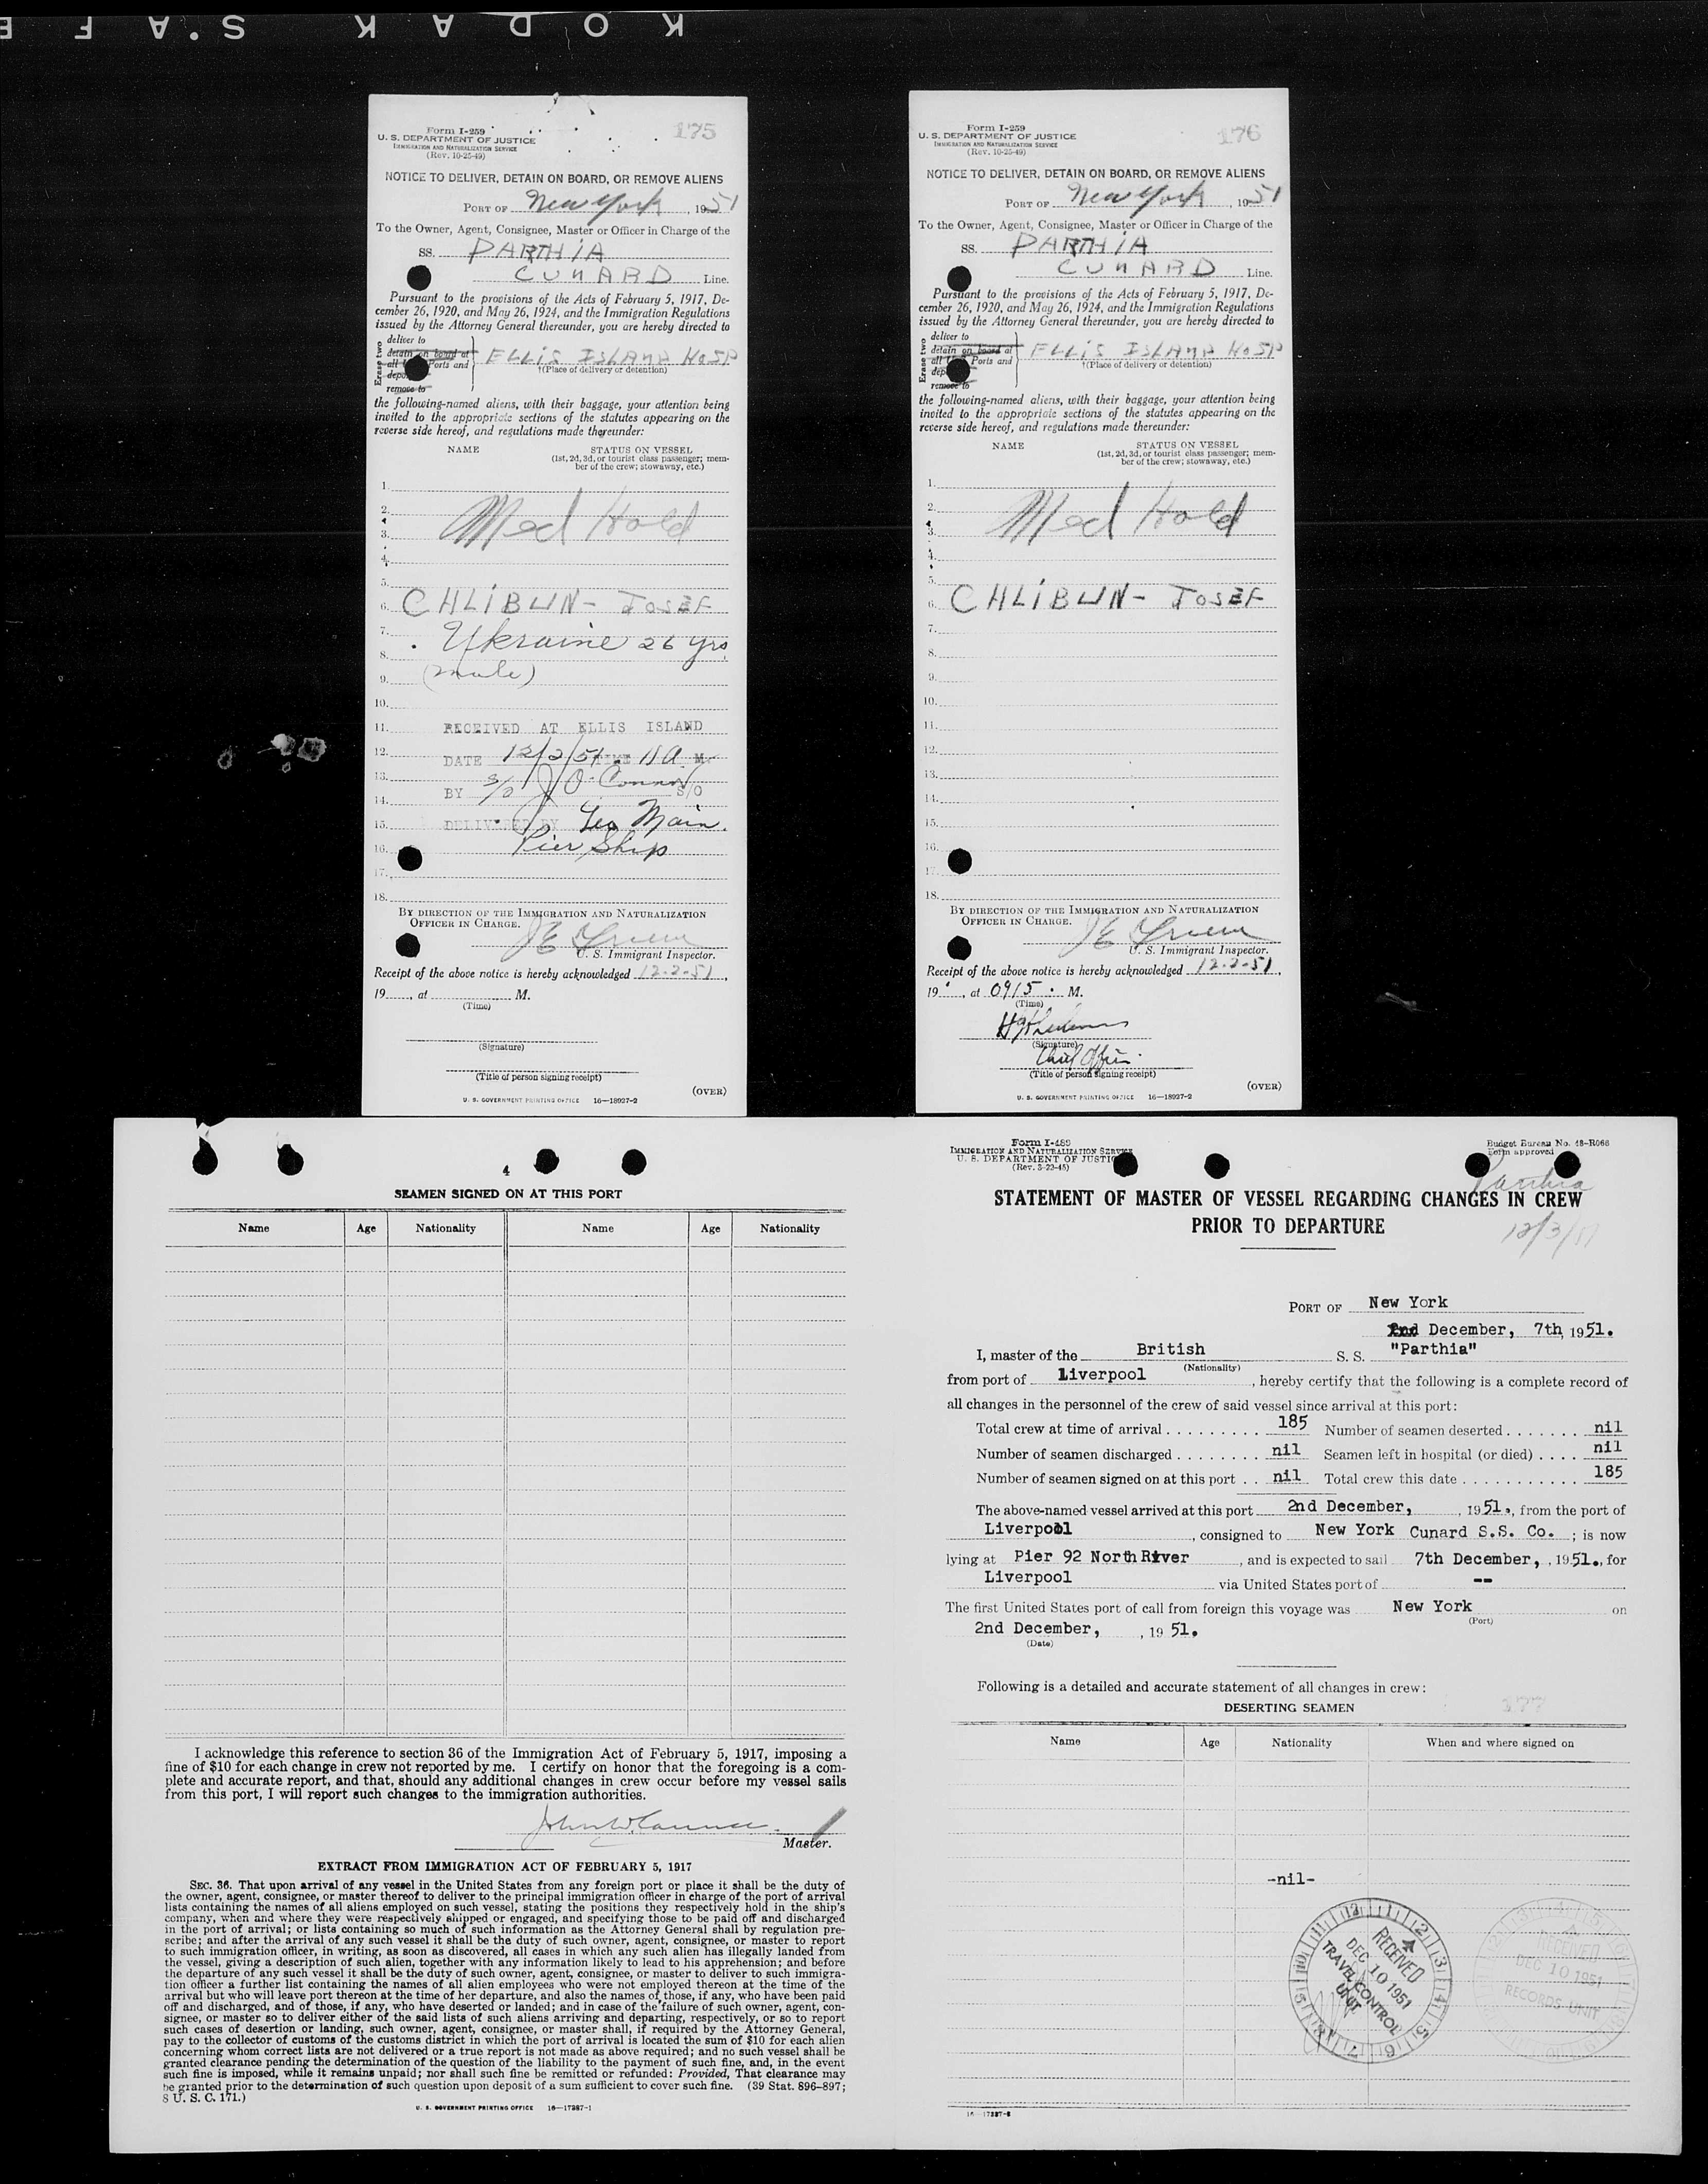 KODAK SAFE
Form I-259
U. S. DEPARTMENT OF JUSTICE
IMMIGRATION AND NATURALIZATION SERVICE
(Rev. 10-25-49)
175
NOTICE TO DELIVER, DETAIN ON BOARD, OR REMOVE ALIENS
PORT OF New York, 1951
To the Owner, Agent, Consignee, Master or Officer in Charge of the
SS. PARTHIA
CUNARD Line.
Pursuant to the provisions of the Acts of February 5, 1917, De-
cember 26, 1920, and May 26, 1924, and the Immigration Regulations
issued by the Attorney General thereunder, you are hereby directed to
Erase two
deliver to
detain on board at
all Ports and
remove to
ELLIS ISLAND HOSP
†(Place of delivery or detention)
the following-named aliens, with their baggage, your attention being
invited to the appropriate sections of the statutes appearing on the
reverse side hereof, and regulations made thereunder:
NAME STATUS ON VESSEL
(1st, 2d, 3d, or tourist class passenger; mem-
ber of the crew; stowaway, etc.)
1.
2.
3. Med Hold
4.
5.
6. CHLIBUN - JOSEF
7. Ukraine 26 yrs
8.
(male)
9.
10.
11. RECEIVED AT ELLIS ISLAND
12. DATE 12/2/51 TIME 11 A. M.
13.
BY S/O J O'Connor S/O
14.
15. DELIVERED BY Leo Main.
16. Pier Ship
17.
18.
BY DIRECTION OF THE IMMIGRATION AND NATURALIZATION
OFFICER IN CHARGE.
U. S. Immigrant Inspector.
Receipt of the above notice is hereby acknowledged 12-2-51,
19, at M.
(Time)
(Signature)
(Title of person signing receipt)
(OVER)
U. S. GOVERNMENT PRINTING OFFICE 16—18927-2
Form I-259
U. S. DEPARTMENT OF JUSTICE
IMMIGRATION AND NATURALIZATION SERVICE
(Rev. 10-25-49)
176
NOTICE TO DELIVER, DETAIN ON BOARD, OR REMOVE ALIENS
PORT OF New York, 1951
To the Owner, Agent, Consignee, Master or Officer in Charge of the
SS. PARTHIA
CUNARD Line.
Pursuant to the provisions of the Acts of February 5, 1917, De-
cember 26, 1920, and May 26, 1924, and the Immigration Regulations
issued by the Attorney General thereunder, you are hereby directed to
Erase two
deliver to
detain on board at
all Ports and
remove to
ELLIS ISLAND HOSP
†(Place of delivery or detention)
the following-named aliens, with their baggage, your attention being
invited to the appropriate sections of the statutes appearing on the
reverse side hereof, and regulations made thereunder:
NAME STATUS ON VESSEL
(1st, 2d, 3d, or tourist class passenger; mem-
ber of the crew; stowaway, etc.)
1.
2.
3. Med Hold
4.
5.
6. CHLIBUN - JOSEF
7.
8.
9.
10.
11.
12.
13.
14.
15.
16.
17.
18.
BY DIRECTION OF THE IMMIGRATION AND NATURALIZATION
OFFICER IN CHARGE.
U. S. Immigrant Inspector.
Receipt of the above notice is hereby acknowledged 12-2-51,
19, at 0915. M.
(Time)
(Signature)
Chief Officer.
(Title of person signing receipt)
(OVER)
U. S. GOVERNMENT PRINTING OFFICE 16—18927-2
4
SEAMEN SIGNED ON AT THIS PORT
Name Age Nationality Name Age Nationality
I acknowledge this reference to section 36 of the Immigration Act of February 5, 1917, imposing a
fine of $10 for each change in crew not reported by me. I certify on honor that the foregoing is a com-
plete and accurate report, and that, should any additional changes in crew occur before my vessel sails
from this port, I will report such changes to the immigration authorities.
Master.
EXTRACT FROM IMMIGRATION ACT OF FEBRUARY 5, 1917
SEC. 36. That upon arrival of any vessel in the United States from any foreign port or place it shall be the duty of
the owner, agent, consignee, or master thereof to deliver to the principal immigration officer in charge of the port of arrival
lists containing the names of all aliens employed on such vessel, stating the positions they respectively hold in the ship's
company, when and where they were respectively shipped or engaged, and specifying those to be paid off and discharged
in the port of arrival; or lists containing so much of such information as the Attorney General shall by regulation pre-
scribe; and after the arrival of any such vessel it shall be the duty of such owner, agent, consignee, or master to report
to such immigration officer, in writing, as soon as discovered, all cases in which any such alien has illegally landed from
the vessel, giving a description of such alien, together with any information likely to lead to his apprehension; and before
the departure of any such vessel it shall be the duty of such owner, agent, consignee, or master to deliver to such immigra-
tion officer a further list containing the names of all alien employees who were not employed thereon at the time of the
arrival but who will leave port thereon at the time of her departure, and also the names of those, if any, who have been paid
off and discharged, and of those, if any, who have deserted or landed; and in case of the failure of such owner, agent, con-
signee, or master so to deliver either of the said lists of such aliens arriving and departing, respectively, or so to report
such cases of desertion or landing, such owner, agent, consignee, or master shall, if required by the Attorney General,
pay to the collector of customs of the customs district in which the port of arrival is located the sum of $10 for each alien
concerning whom correct lists are not delivered or a true report is not made as above required; and no such vessel shall be
granted clearance pending the determination of the question of the liability to the payment of such fine, and, in the event
such fine is imposed, while it remains unpaid; nor shall such fine be remitted or refunded: Provided, That clearance may
be granted prior to the determination of such question upon deposit of a sum sufficient to cover such fine. (39 Stat. 896-897;
8 U. S. C. 171.)
U. S. GOVERNMENT PRINTING OFFICE 16—17387-1
Form I-489
IMMIGRATION AND NATURALIZATION SERVICE
U. S. DEPARTMENT OF JUSTICE
(Rev. 3-22-45)
Budget Bureau No. 43-R066
Form approved
Parthia
STATEMENT OF MASTER OF VESSEL REGARDING CHANGES IN CREW
PRIOR TO DEPARTURE
12/3/51
PORT OF New York
2nd December, 7th, 1951.
I, master of the British S. S. "Parthia"
(Nationality)
from port of Liverpool, hereby certify that the following is a complete record of
all changes in the personnel of the crew of said vessel since arrival at this port:
Total crew at time of arrival 185 Number of seamen deserted nil
Number of seamen discharged nil Seamen left in hospital (or died) nil
Number of seamen signed on at this port nil Total crew this date 185
The above-named vessel arrived at this port 2nd December, 1951., from the port of
Liverpool, consigned to New York Cunard S.S. Co.; is now
lying at Pier 92 North River, and is expected to sail 7th December, 1951., for
Liverpool via United States port of --
The first United States port of call from foreign this voyage was New York on
(Port)
2nd December, 1951.
(Date)
Following is a detailed and accurate statement of all changes in crew:
DESERTING SEAMEN
177
Name Age Nationality When and where signed on
-nil-
RECEIVED
DEC 10 1951
TRAVEL CONTROL
UNIT
RECEIVED
DEC 10 1951
RECORDS UNIT